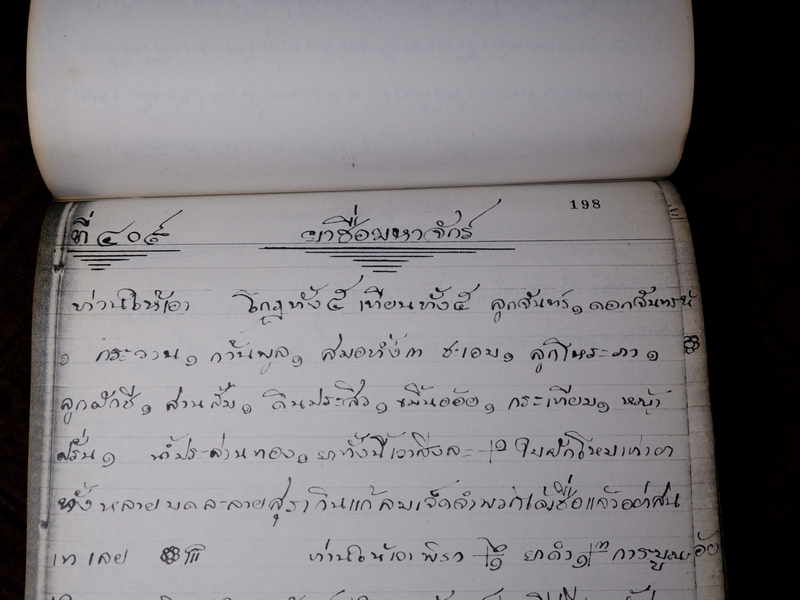 198
ที่ ๔๐๙ ยาชื่อมหาจักร์
ท่านให้เอา โกฎทั้ง๕ เทียนทั้ง๕ ลูกจันทร์๑ ดอกจันทร์
๑ กระวาน๑ กานพลู๑ สมอทั้ง๓ ชะเอม๑ ลูกโหระภา๑
ลูกผักชี๑ สานส้ม๑ ดินประสิว๑ ขมิ้นอ้อย๑ กระเทียม๑ หญ้า
ฝรั่น๑ น้ำประสานทอง๑ ยาทั้งนี้เอาสิ่งละ ๑ ใบผักโหมเท่ายา
ทั้งหลายบดละลายสุรากินแก้ลม
เทเลย ท่านให้เอา ยาดำ การบูน